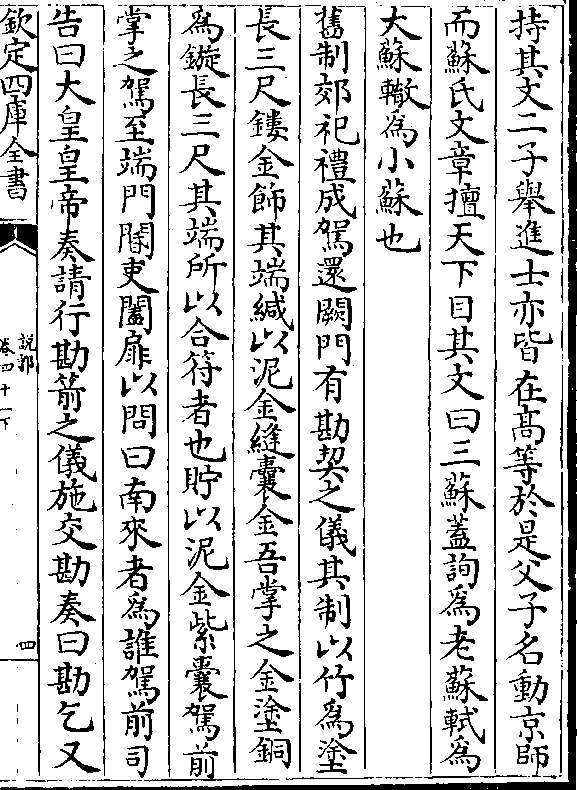 持其文二子舉進士亦皆在髙等於是父子名動京師
而蘇氏文章擅天下目其文曰三蘇蓋詢為老蘇軾為
大蘇轍為小蘇也
舊制郊祀禮成駕還闕門有勘契之儀其制以竹為塗
長三尺鏤金飾其端緘以泥金縫囊金吾掌之金塗銅
為鏇長三尺其端所以合符者也貯以泥金紫囊駕前
掌之駕至端門閽吏闔扉以問曰南來者為誰駕前司
告曰大皇皇帝奏請行勘箭之儀施交勘奏曰勘乞又
欽定四庫全書
說郛
卷四十一下
四